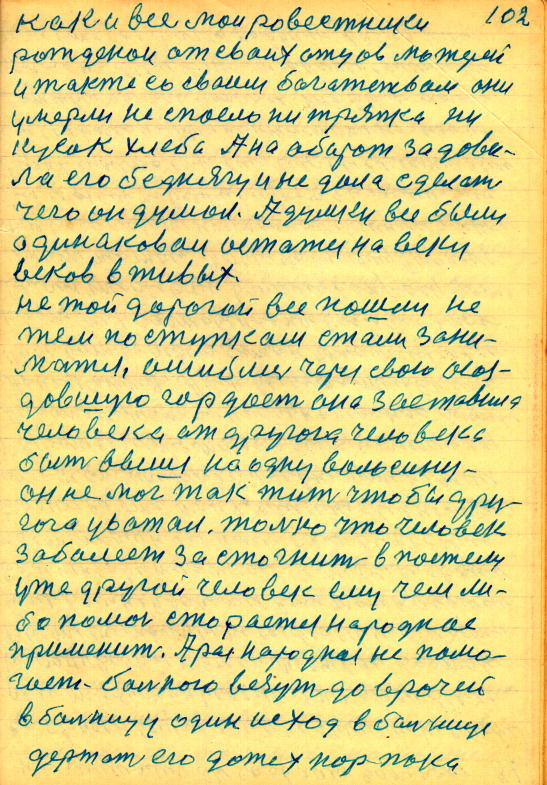 102
как и все мои ровестники
рожденои от своих отцов матерей
и также со своим богатством они
умерли не спосло ни тряпка ни
кусок хлеба А на оборот задови-
ла его беднягу и не дала сделат
чего он думал. А думки все были
одинаковои остатся на веки
веков в живых.
не той дорогой все пошли не
тем поступкам стали зани-
матся, ошиблис через свою
довшую гордост она заставила
человека от другога человека
быт выши на одну волосину-
он не мог так жит чтобы дру-
гога уважал. толко что человек
заболеет застогнит в постели
уже другой человек ему чем ли-
бо помоч стораетя народное
применит. А раз народная не помо-
гает- болного везут до врочей
в болницу один исход в болнице
держат его до тех пор пока